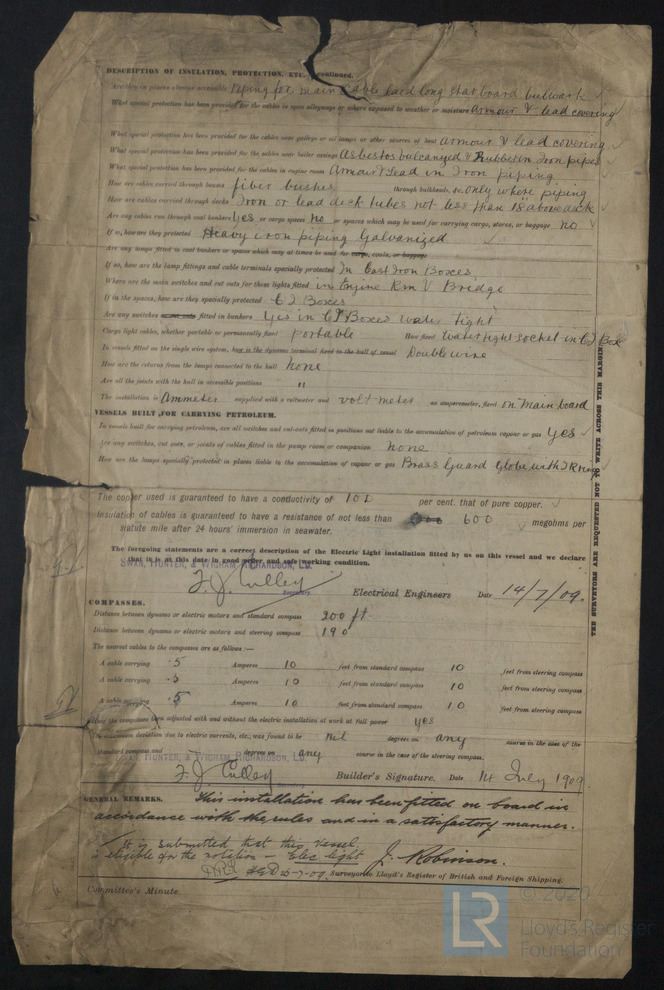 DESCRIPTION OF INSULATION, PROTECTION, ETC. continued.
Are they in places always accessible Piping for main cable laid long starboard bulwark
What special protection has been provided for the cables in open alleyways or where exposed to weather or moisture Armour & lead covering
What special protection has been provided for the cables near galleys or oil lamps or other sources of heat armour & lead covering
What special protection has been provided for the cables near boiler casings Asbestos vulcanized & Rubber in Iron pipes
What special protection has been provided for the cables in engine room Armour & Lead in Iron piping
How are cables carried through beams fiber bushes through bulkheads, &c. only where piping
How are cables carried through decks Iron or lead deck tubes not less than 18" above deck
Are any cables run through coal bunkers Yes or cargo spaces no or spaces which may be used for carrying cargo, stores, or baggage no
If so, how are they protected Heavy iron piping Galvanized
Are any lamps fitted in coal bunkers or spaces which may at times be used for cargo, coals, or baggage
If so, how are the lamp fittings and cable terminals specially protected In Cast Iron Boxes
Where are the main switches and cut outs for these lights fitted in Engine Rm & Bridge
If in the spaces, how are they specially protected C I Boxes
Are any switches fitted in bunkers Yes in C I Boxes water tight
Cargo light cables, whether portable or permanently fixed portable How fixed Watertight socket in C I Box
In vessels fitted on the single wire system, how is the dynamo terminal fixed to the hull of vessel Double wire
How are the returns from the lamps connected to the hull none
Are all the joints with the hull in accessible positions "
The installation is Ammeter supplied with a voltmeter and voltmeter an amperemeter, fixed on main board
VESSELS BUILT FOR CARRYING PETROLEUM.
In vessels built for carrying petroleum, are all switches and cut-outs fitted in positions not liable to the accumulation of petroleum vapour or gas yes
Are any switches, cut outs, or joints of cables fitted in the pump room or companion none
How are the lamps specially protected in places liable to the accumulation of vapour or gas Brass Guard Globe with I R ring
The copper used is guaranteed to have a conductivity of 101 per cent. that of pure copper.
Insulation of cables is guaranteed to have a resistance of not less than 600 megohms per
statute mile after 24 hours' immersion in seawater.
The foregoing statements are a correct description of the Electric Light installation fitted by us on this vessel and we declare
that it is at this date in good order and safe working condition.
SWAN, HUNTER, & WIGHAM RICHARDSON, LD.
F. J. Culley Electrical Engineers Date 14/7/09.
Secretary
COMPASSES.
Distance between dynamo or electric motors and standard compass 200 ft
Distance between dynamo or electric motors and steering compass 190
The nearest cables to the compasses are as follows:—
A cable carrying .5 Amperes 10 feet from standard compass 10 feet from steering compass
A cable carrying .5 Amperes 10 feet from standard compass 10 feet from steering compass
A cable carrying .5 Amperes 10 feet from standard compass 10 feet from steering compass
Have the compasses been adjusted with and without the electric installation at work at full power yes
The maximum deviation due to electric currents, etc., was found to be nil degrees on any course in the case of the
standard compass and degrees on any course in the case of the steering compass.
SWAN, HUNTER, & WIGHAM RICHARDSON, LD.
F. J. Culley Builder's Signature. Date 14 July 1909
GENERAL REMARKS. This installation has been fitted on board in
accordance with the rules and in a satisfactory manner.
It is submitted that this vessel
is eligible for the notation — Elec light. J. Robinson.
Surveyor to Lloyd's Register of British and Foreign Shipping.
Committee's Minute
THE SURVEYORS ARE REQUESTED NOT TO WRITE ACROSS THIS MARGIN.
LR
© 2020
Lloyd's Register
Foundation